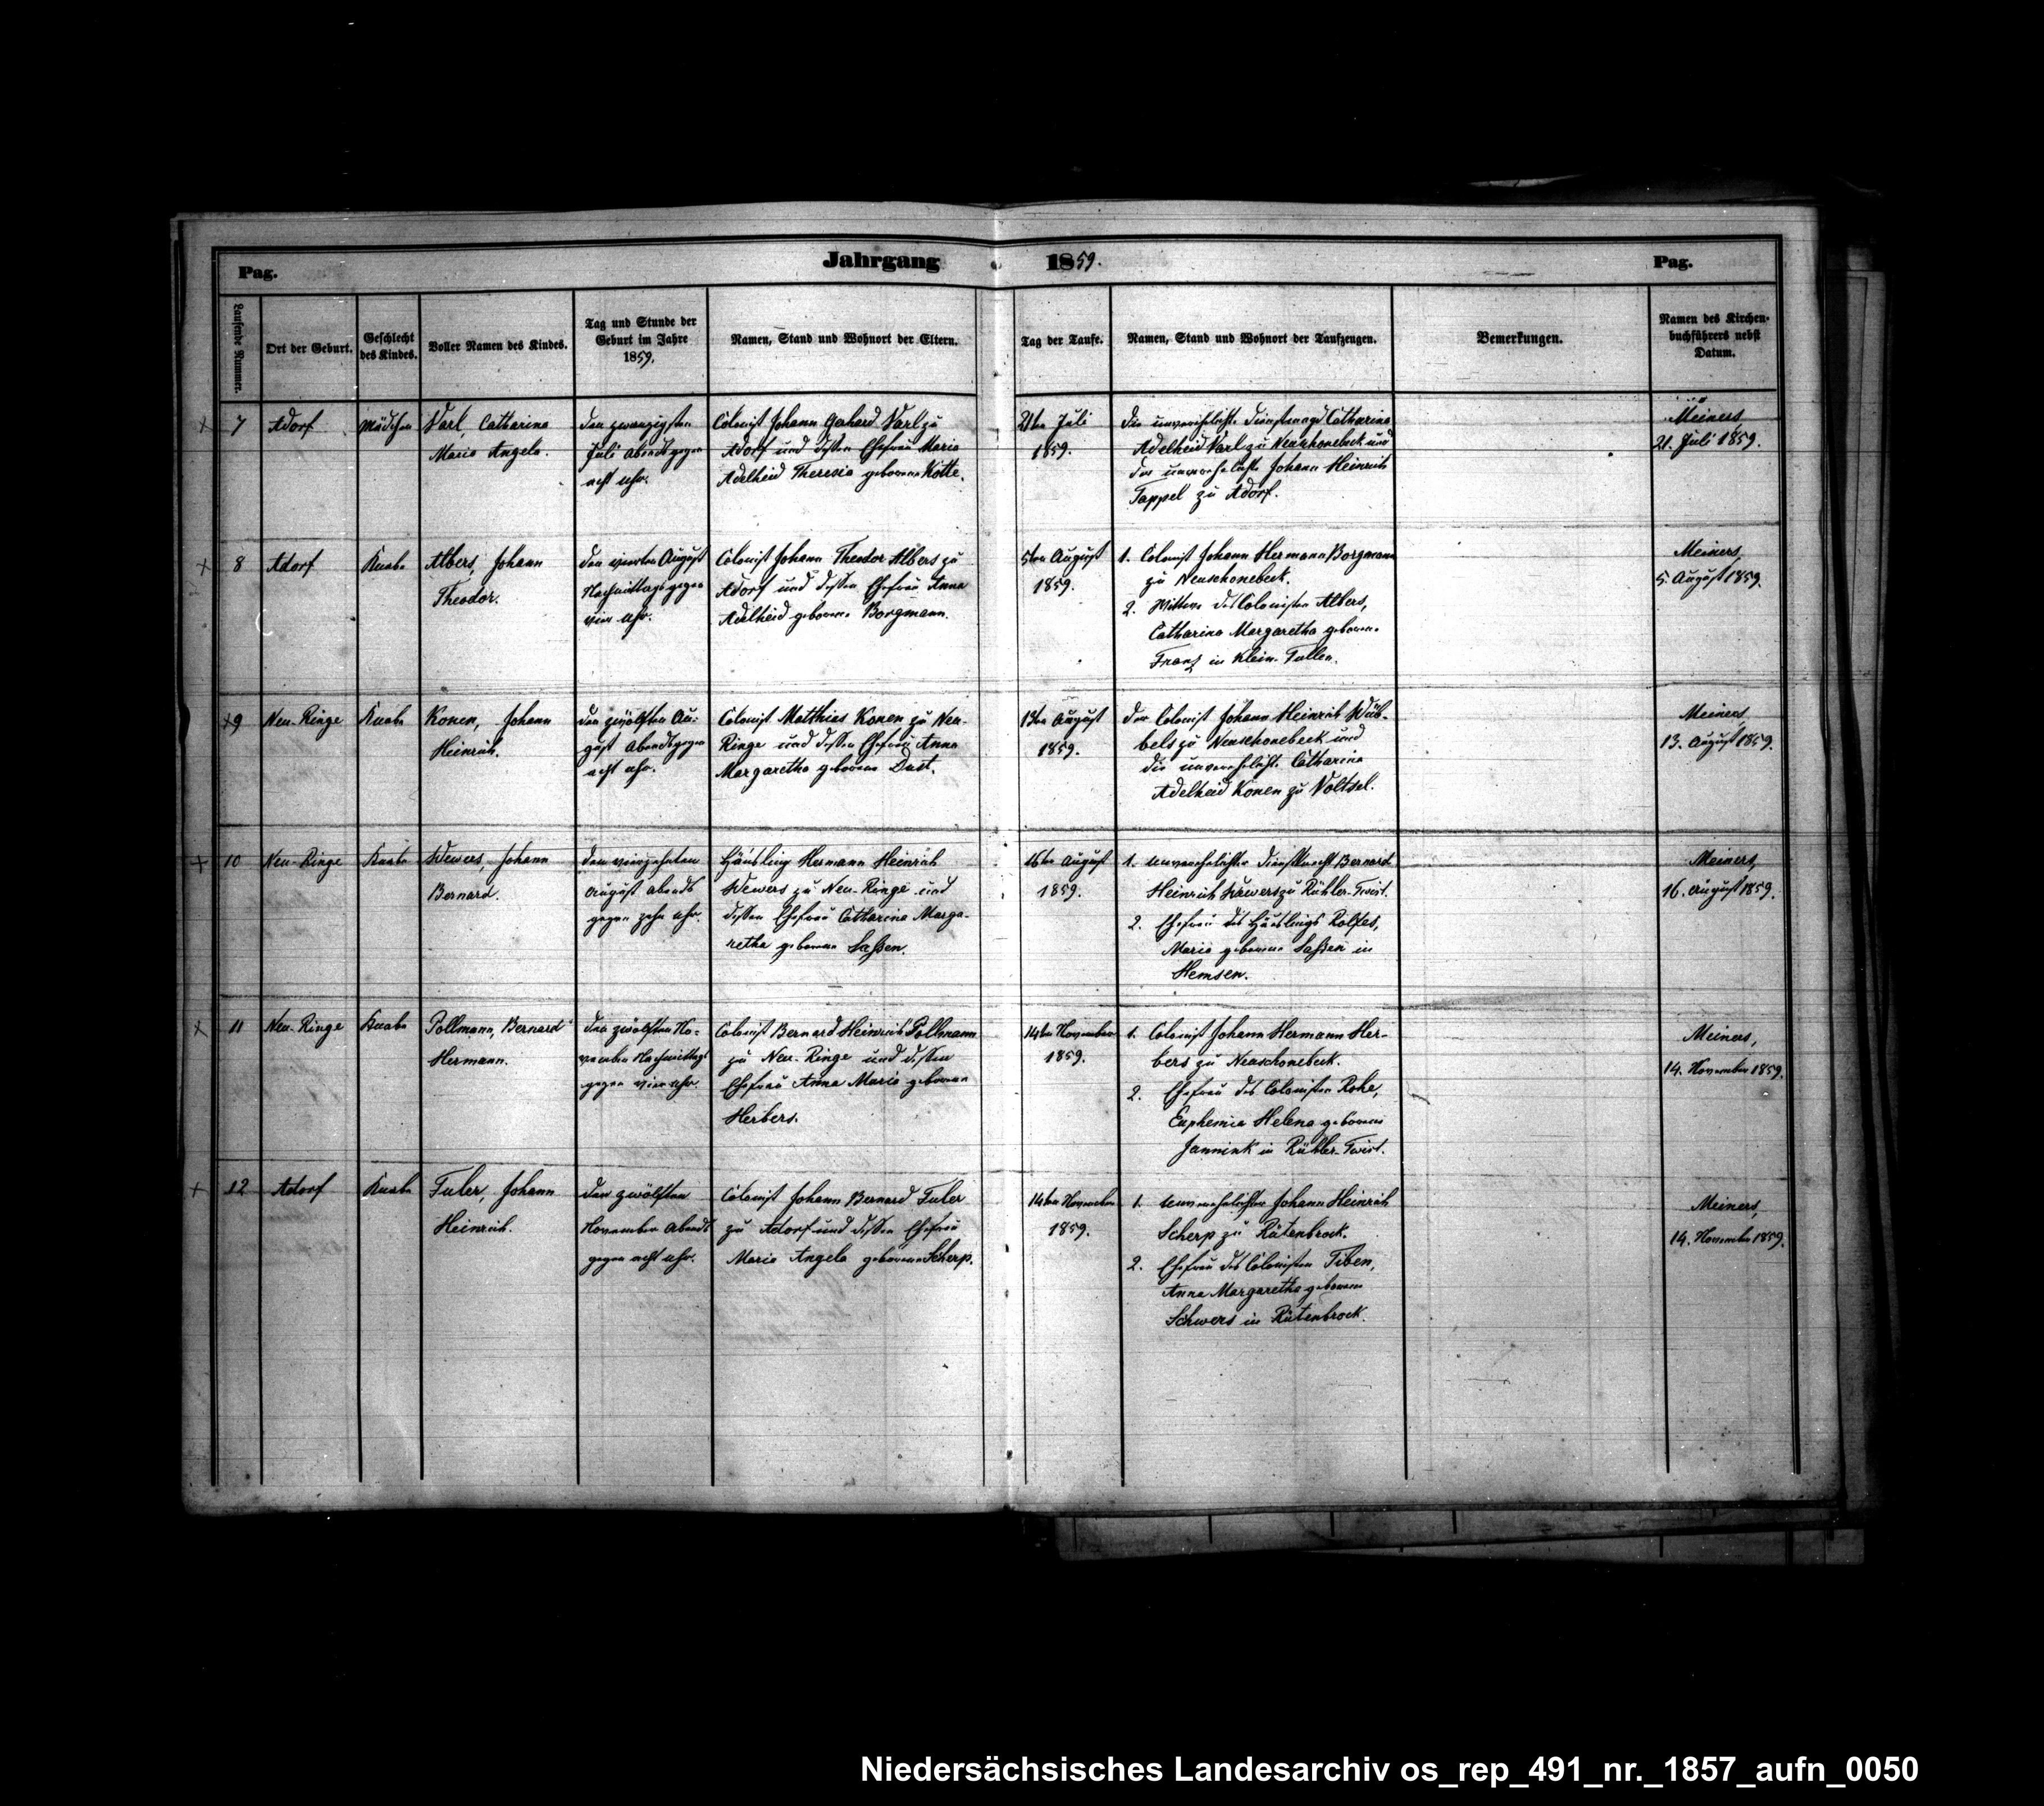 Pag.
Jahrgang 1859.
Pag.
Laufende Nummer.
Ort der Geburt.
Geschlecht
des Kindes.
Voller Namen des Kindes.
Tag und Stunde der
Geburt im Jahre
1859.
Namen, Stand und Wohnort der Eltern.
Tag der Taufe.
Namen, Stand und Wohnort der Taufzeugen.
Bemerkungen.
Namen des Kirchen-
buchführers nebst
Datum.
7
Adorf
Mädchen
Varl, Catharina
Maria Angela.
den zwanzigsten
Juli Abends gegen
acht Uhr.
Colonist Johann Gerhard Varl zu
Adorf und dessen Ehefrau Maria
Adelheid Theresia geborene Kotte.
21ten Juli
1859.
die unverehelichte Dienstmagd Catharina
Adelheid Varl zu Neuschonebeck und
der unverehelichte Johann Heinrich
Tappel zu Adorf.
Meiners,
21. Juli 1859.
8
Adorf
Knabe
Albers, Johann
Theodor.
den vierten August
Nachmittags gegen
vier Uhr.
Colonist Johann Theodor Albers zu
Adorf und dessen Ehefrau Anna
Adelheid geborene Borgmann.
5ten August
1859.
1. Colonist Johann Hermann Borgmann
zu Neuschonebeck.
2. Wittwe des Colonisten Albers,
Catharina Margaretha geborene
Franz in Klein-Fullen.
Meiners,
5. August 1859.
9
Neu-Ringe
Knabe
Konen, Johann
Heinrich.
den zwölften Au-
gust Abends gegen
acht Uhr.
Colonist Matthias Konen zu Neu-
Ringe und dessen Ehefrau Anna
Margaretha geborene Dust.
13ten August
1859.
der Colonist Johann Heinrich Wüb-
bels zu Neuschonebeck und
die unverehelichte Catharina
Adelheid Konen zu Voltsel.
Meiners,
13. August 1859.
10
Neu-Ringe
Knabe
Wewers, Johann
Bernard.
den vierzehnten
August Abends
gegen zehn Uhr.
Häusling Hermann Heinrich
Wewers zu Neu-Ringe und
dessen Ehefrau Catharina Marga-
retha geborene Saßen.
16ten August
1859.
1. unverehelichter Dienstknecht Bernard
Heinrich Wewers zu Rühler-Twist.
2. Ehefrau des Häuslings Rolfes,
Maria geborene Saßen in
Hemsen.
Meiners,
16. August 1859.
11
Neu-Ringe
Knabe
Pollmann, Bernard
Hermann.
den zwölften No-
vember Nachmittags
gegen vier Uhr.
Colonist Bernard Heinrich Pollmann
zu Neu-Ringe und dessen
Ehefrau Anna Maria geborene
Herbers.
14ten November
1859.
1. Colonist Johann Hermann Her-
bers zu Neuschonebeck.
2. Ehefrau des Colonisten Rohe,
Euphemia Helena geborene
Jannink in Rühler-Twist.
Meiners,
14. November 1859.
12
Adorf
Knabe
Fuler, Johann
Heinrich.
den zwölften
November Abends
gegen acht Uhr.
Colonist Johann Bernard Fuler
zu Adorf und dessen Ehefrau
Maria Angela geborene Scherp.
14ten November
1859.
1. unverehelichter Johann Heinrich
Scherp zu Rütenbrock.
2. Ehefrau des Colonisten Tiben,
Anna Margaretha geborene
Schwers in Rütenbrock.
Meiners,
14. November 1859.
Niedersächsisches Landesarchiv os_rep_491_nr._1857_aufn_0050